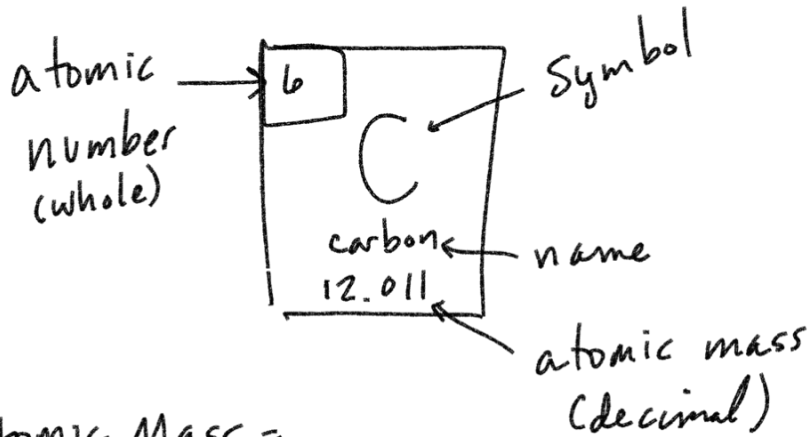 atomic
number
(whole)
6
Symbol
C
carbon
name
12.011
atomic mass
(decimal)
Mass =